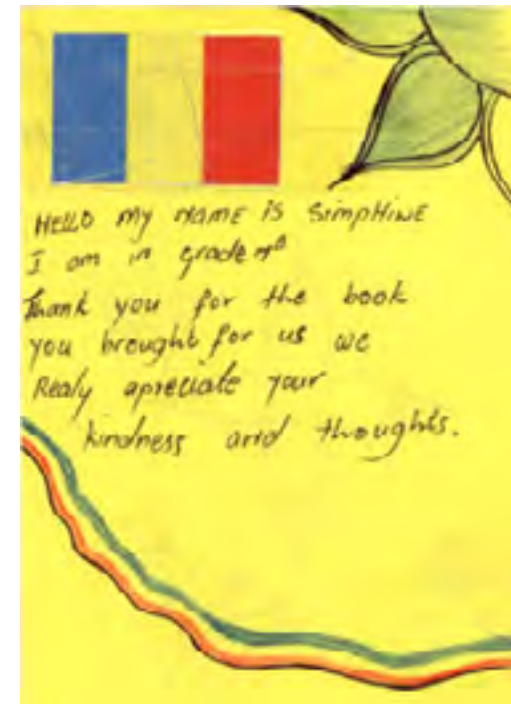 HELLO my NAME is SimpHiwE
I am in grade
Thank you for the book
you brought for us we
Realy apreciate your
kindness and thoughts.